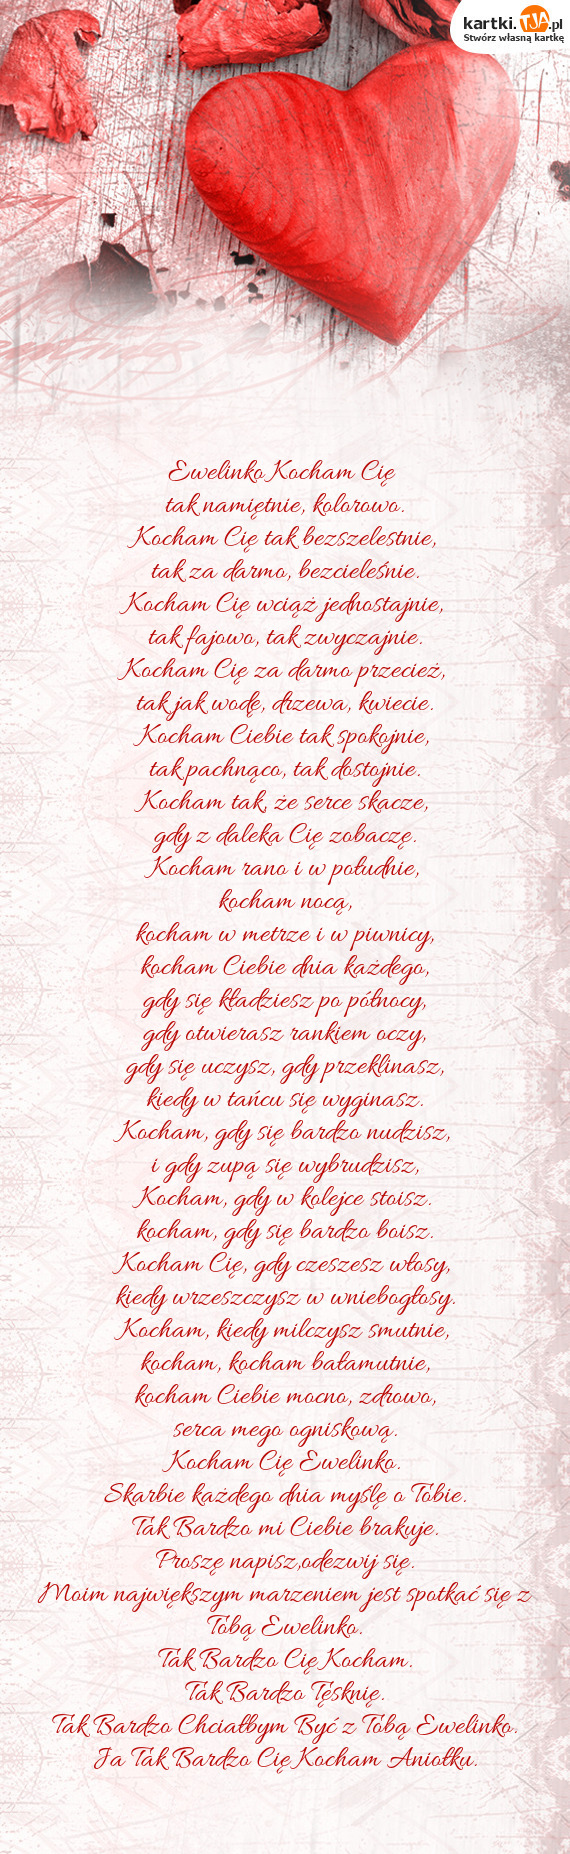 kartki.TJA.pl
Stwórz własną kartkę
Ewelinko Kocham Cię
tak namiętnie, kolorowo.
Kocham Cię tak bezszelestnie,
tak za darmo, bezcieleśnie.
Kocham Cię wciąż jednostajnie,
tak fajowo, tak zwyczajnie.
Kocham Cię za darmo przecież,
tak jak wodę, drzewa, kwiecie.
Kocham Ciebie tak spokojnie,
tak pachnąco, tak dostojnie.
Kocham tak, że serce skacze,
gdy z daleka Cię zobaczę.
Kocham rano i w południe,
kocham nocą,
kocham w metrze i w piwnicy,
kocham Ciebie dnia każdego,
gdy się kładziesz po północy,
gdy otwierasz rankiem oczy,
gdy się uczysz, gdy przeklinasz,
kiedy w tańcu się wyginasz.
Kocham, gdy się bardzo nudzisz,
i gdy zupą się wybrudzisz,
Kocham, gdy w kolejce stoisz.
kocham, gdy się bardzo boisz.
Kocham Cię, gdy czeszesz włosy,
kiedy wrzeszczysz w wniebogłosy.
Kocham, kiedy milczysz smutnie,
kocham, kocham bałamutnie,
kocham Ciebie mocno, zdrowo,
serca mego ogniskową.
Kocham Cię Ewelinko.
Skarbie każdego dnia myślę o Tobie.
Tak Bardzo mi Ciebie brakuje.
Proszę napisz,odezwij się.
Moim największym marzeniem jest spotkać się z
Tobą Ewelinko.
Tak Bardzo Cię Kocham.
Tak Bardzo Tęsknię.
Tak Bardzo Chciałbym Być z Tobą Ewelinko.
Ja Tak Bardzo Cię Kocham Aniołku.